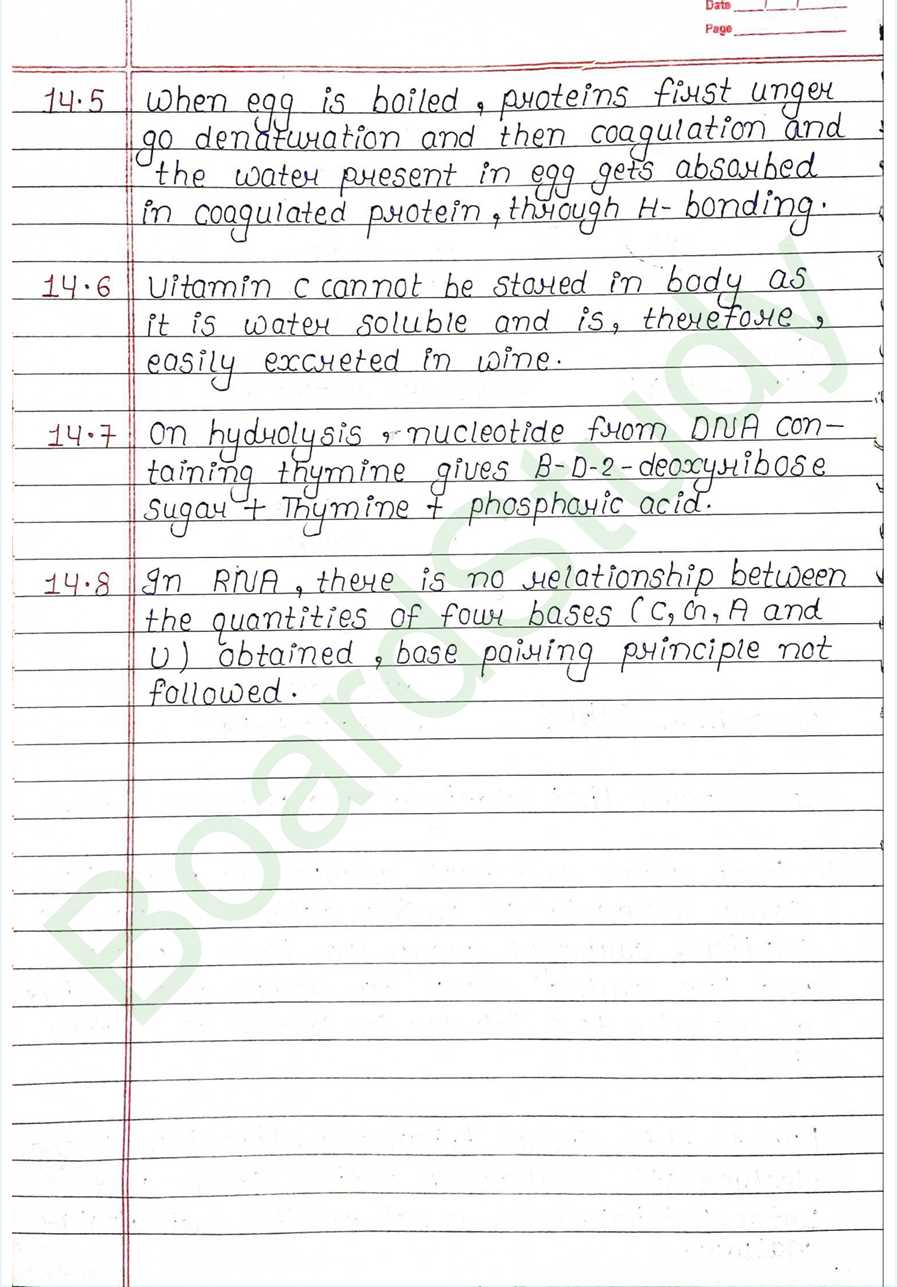 Date / /
Page
14.5 When egg is boiled, proteins first unger
go denaturation and then coagulation and
the water present in egg gets absorbed
in coagulated protein, through H-bonding.
14.6 Vitamin C cannot be stored in body as
it is water soluble and is, therefore,
easily excreted in wine.
14.7 On hydrolysis, nucleotide from DNA con-
taining thymine gives B-D-2-deoxyribose
sugar + Thymine + phosphoric acid.
14.8 In RNA, there is no relationship between
the quantities of four bases (C, G, A and
U) obtained, base pairing principle not
followed.
BoardStudy